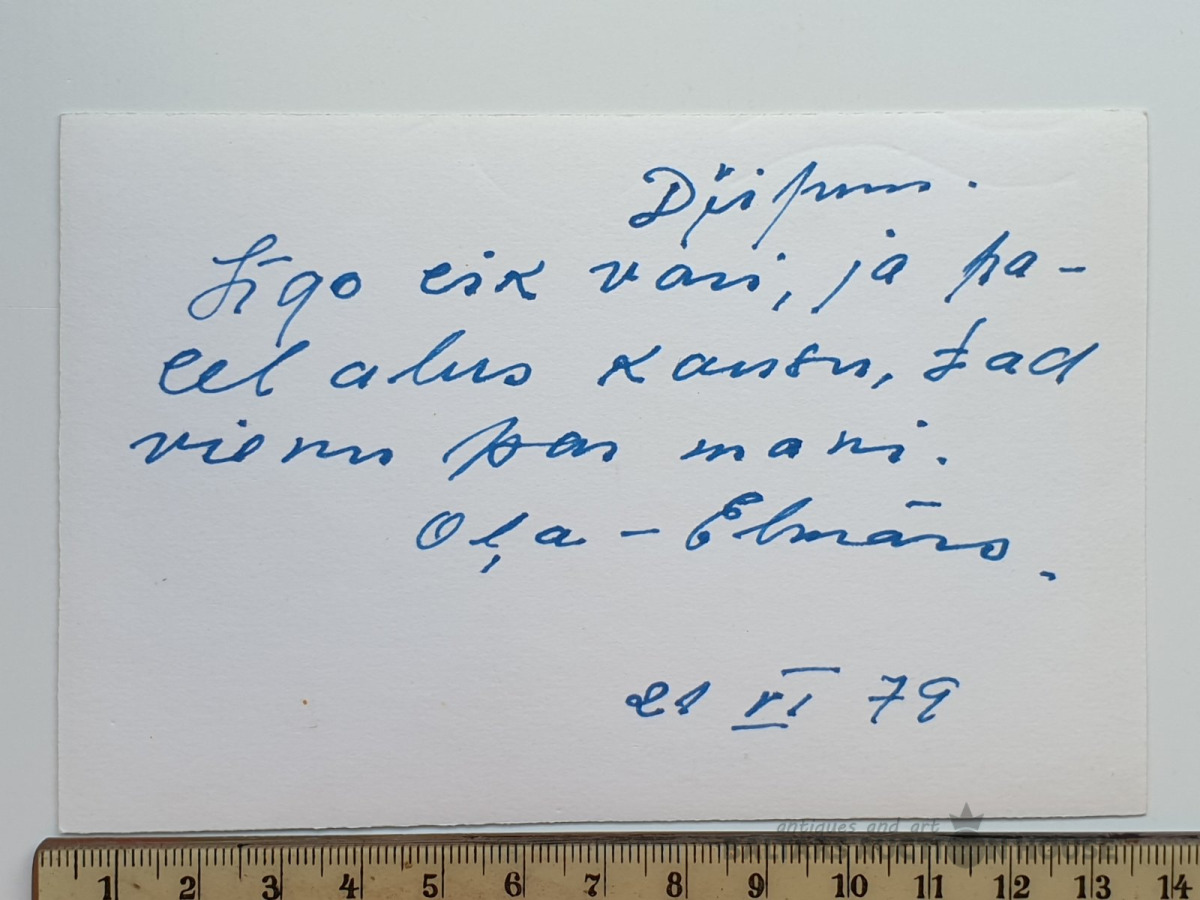 Līgo cik vari, ja pa-
cel alus kausu, tad
vienu par mani.
Oļa - Elmārs.
21 VI 79
antiques and art
1 2 3 4 5 6 7 8 9 10 11 12 13 14